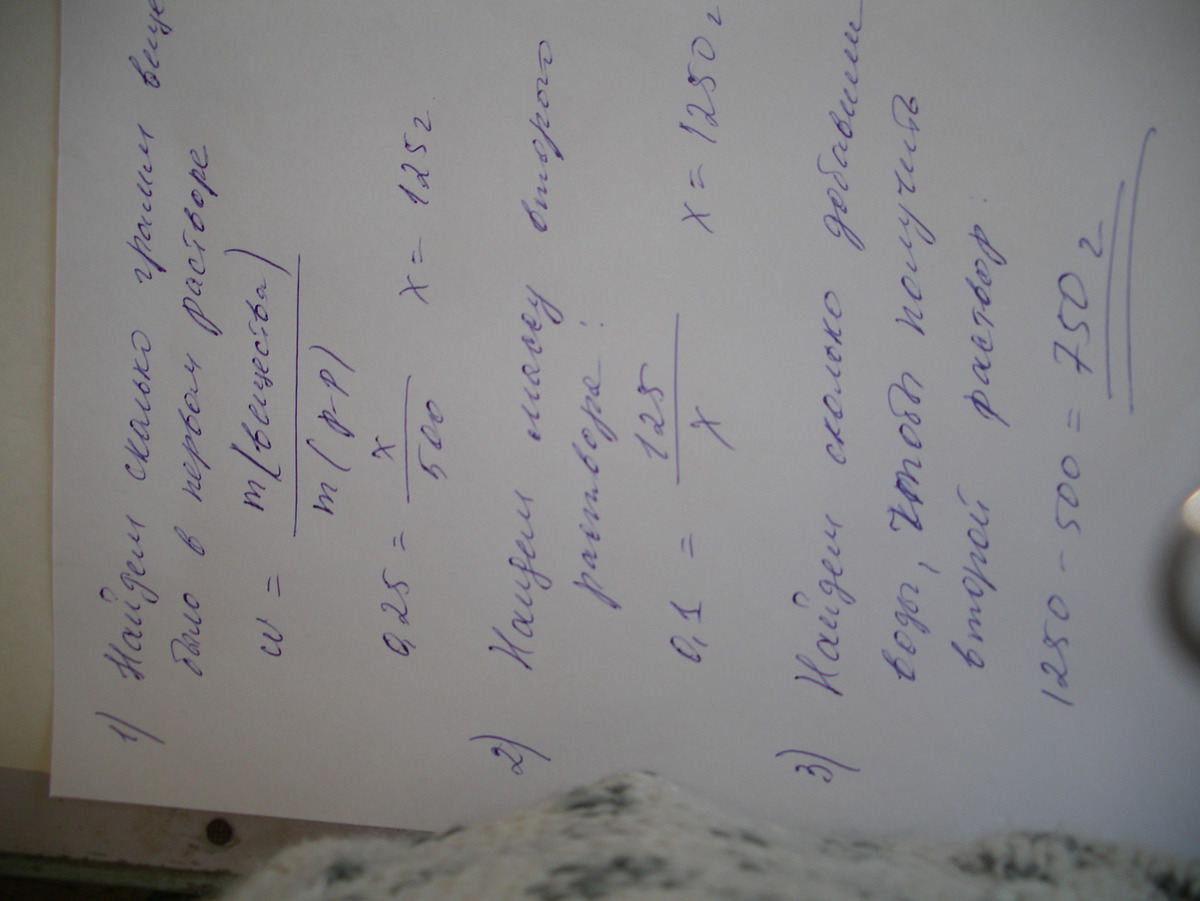 1) Найдем сколько грамм
было в первом растворе
w = m(вещества)
m(р-р)
0,25 = x/500 x = 125 г.
2) Найдем массу второго
раствора:
0,1 = 125/x x = 1250 г
3) Найдем сколько добавили
воды, чтобы получить
второй раствор:
1250 - 500 = 750 г